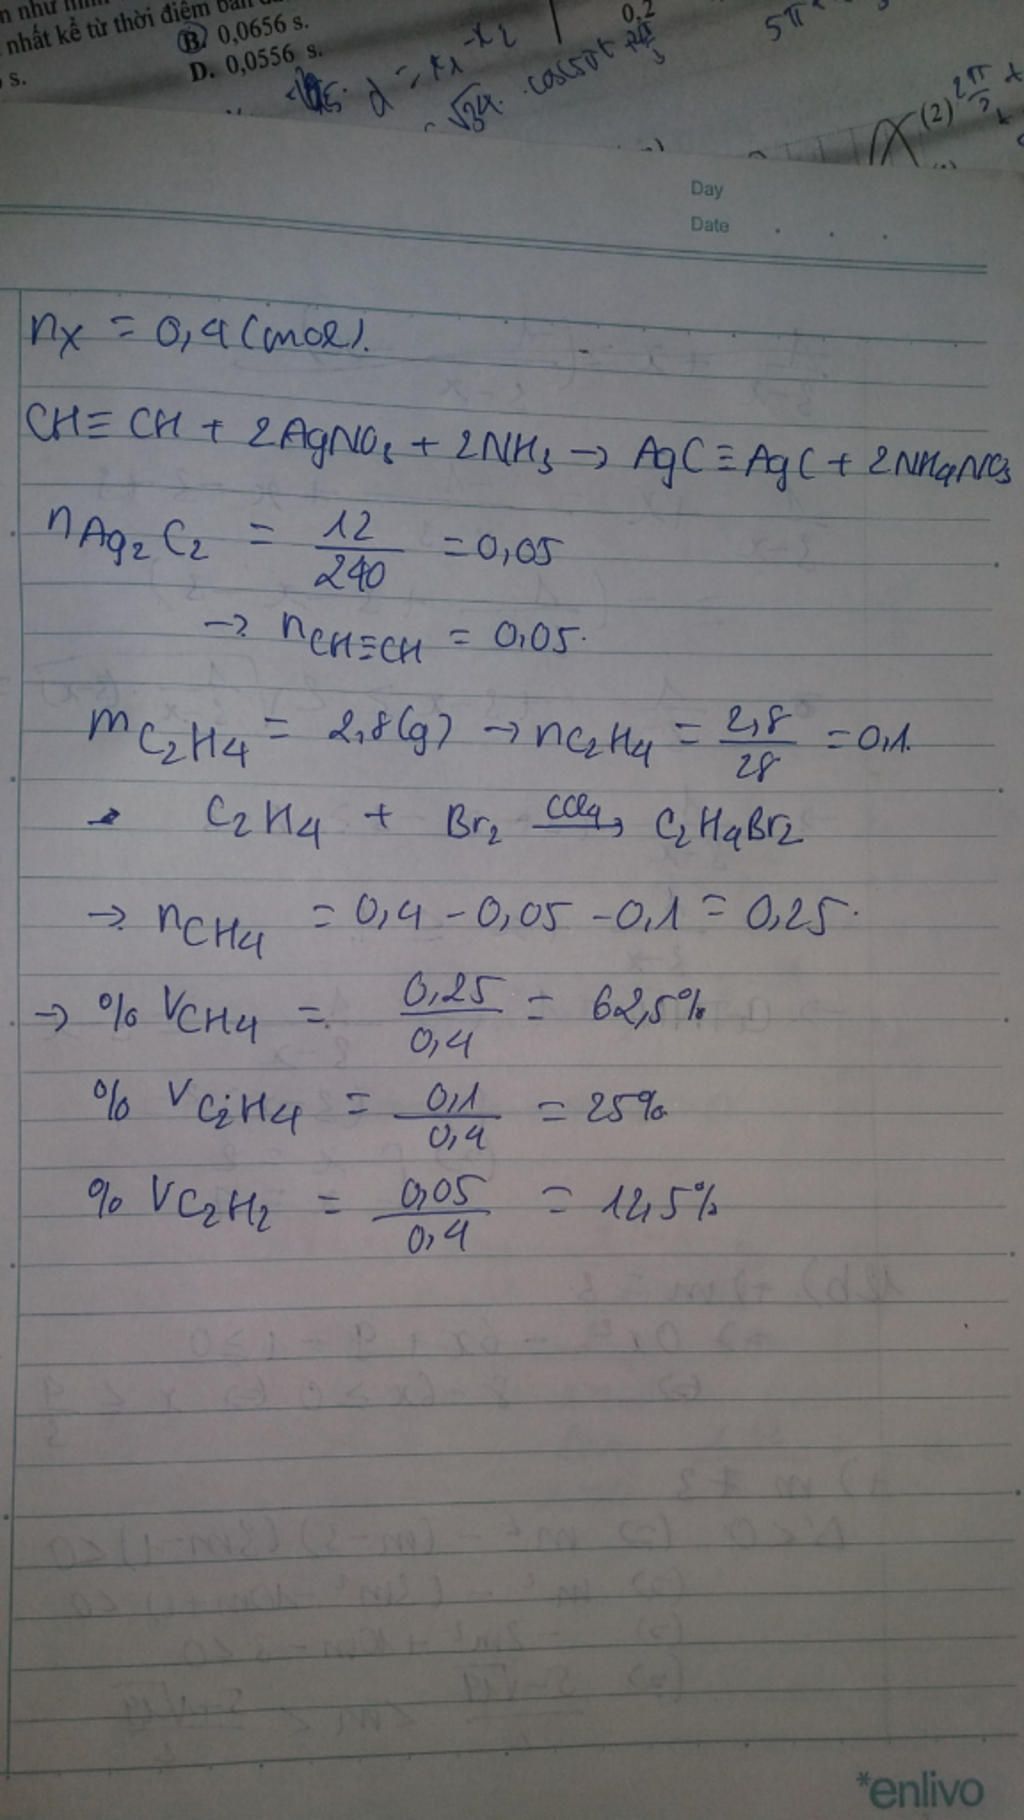 nhất kể từ thời điểm ban
B. 0,0656 s.
s.
D. 0,0556 s.
0,2
5π
(2)
Day
Date
nX = 0,4 (mol).
CH≡CH + 2AgNO3 + 2NH3 → AgC≡AgC + 2NH4NO3
nAg2C2 = 12/240 = 0,05
→ nCH≡CH = 0,05.
mC2H4 = 2,8(g) → nC2H4 = 2,8/28 = 0,1.
C2H4 + Br2 →(CCl4) C2H4Br2
→ nCH4 = 0,4 - 0,05 - 0,1 = 0,25.
→ % VCH4 = 0,25/0,4 = 62,5%
% VC2H4 = 0,1/0,4 = 25%
% VC2H2 = 0,05/0,4 = 12,5%
*enlivo